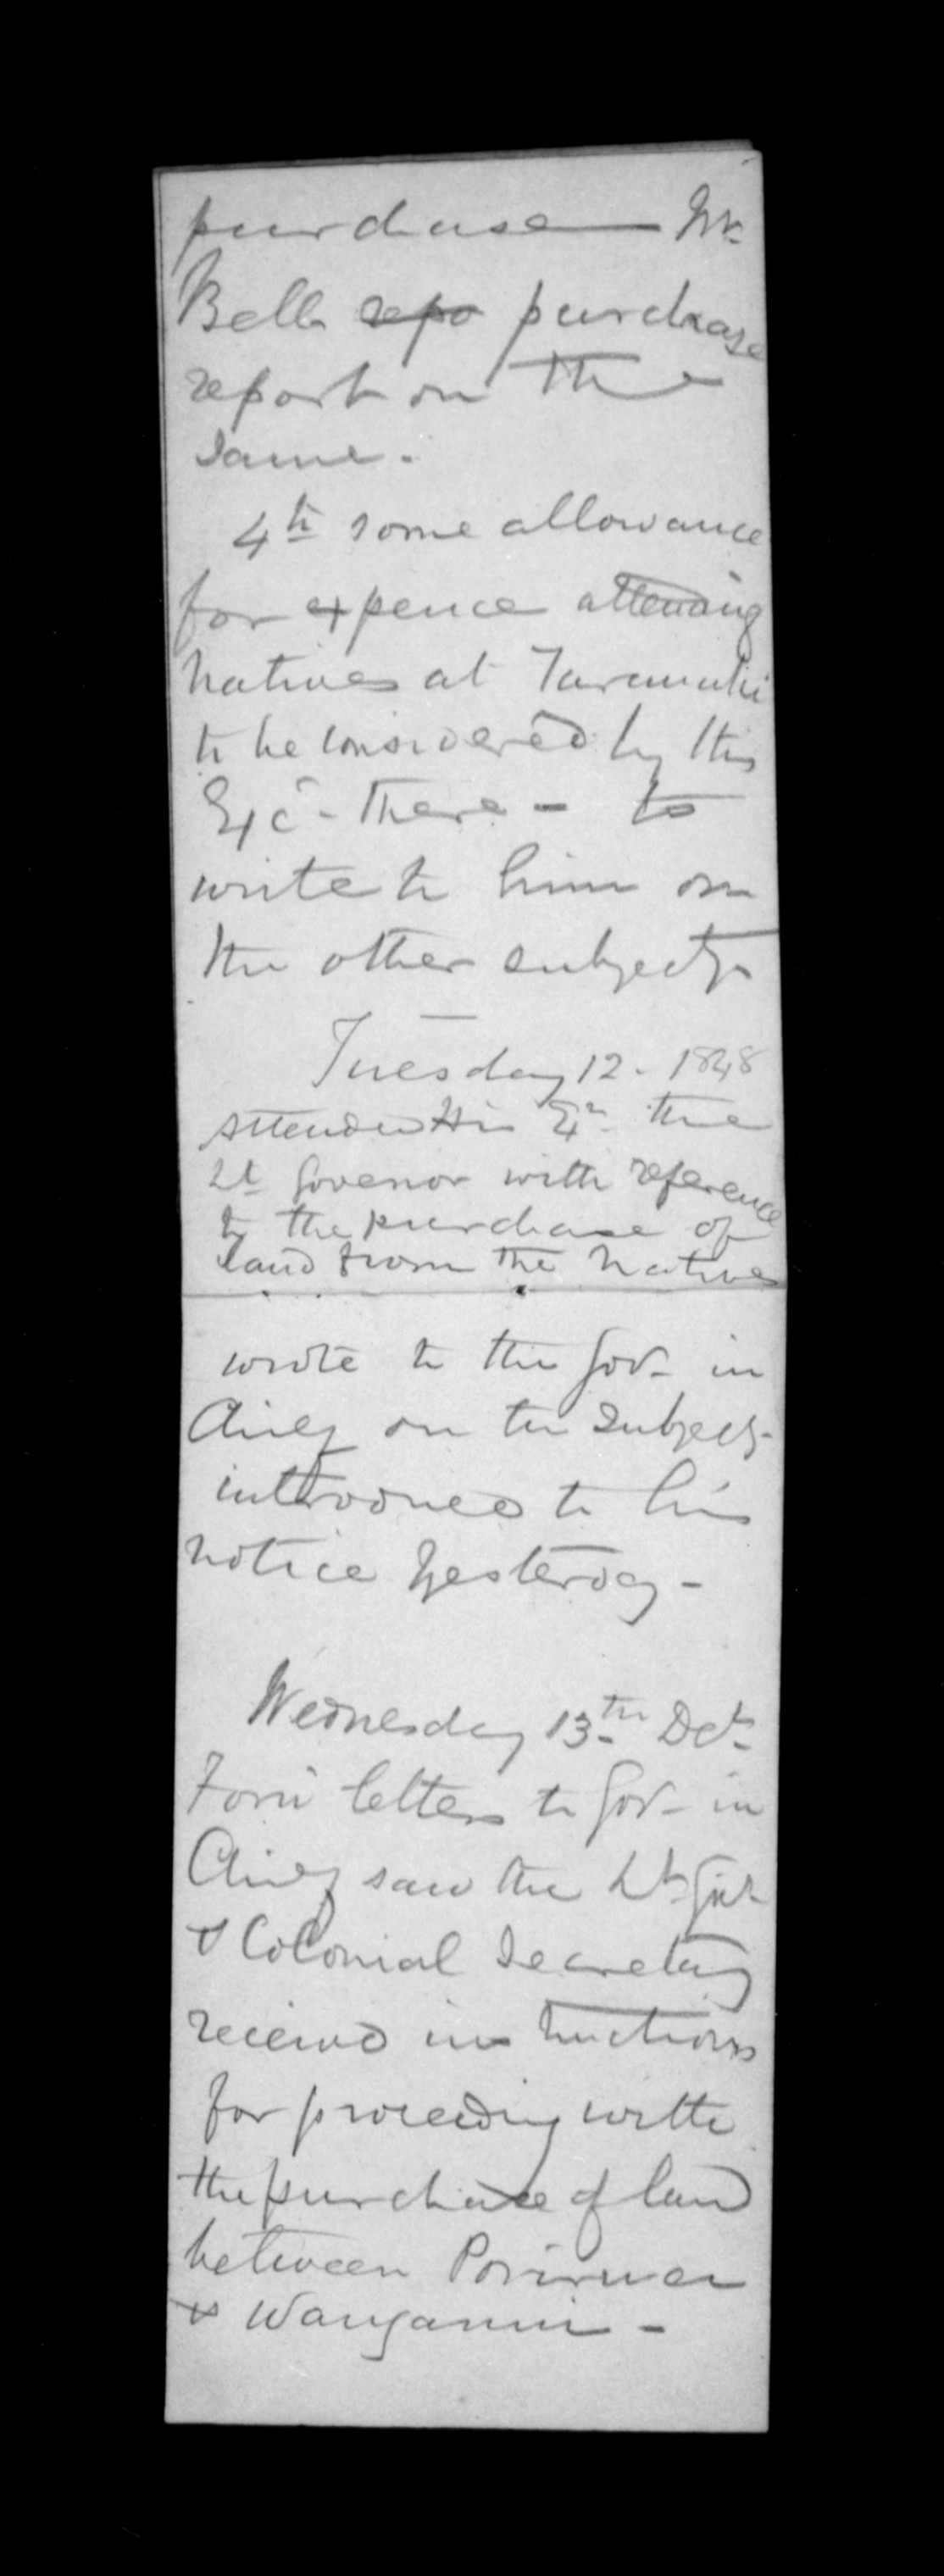 purchase — Mr.
Bells repo purchase
report on the
same.
4th some allowance
for expence attending
Natives at Taranaki
to be considered by His
Exc - there - to
write to him on
the other subjects
Tuesday 12 - 1848
Attended His Ex. the
Lt Govenor with reference
to the purchase of
land from the Natives
wrote to the Gov - in
Chief on the subject
introduced to his
notice yesterday -
Wednesday 13th Dec.
letters to Gov - in
Chief saw the Lt Gov.
& Colonial Secretary
received instructions
for proceeding with
the purchase of land
between Porirua
& Wanganui -